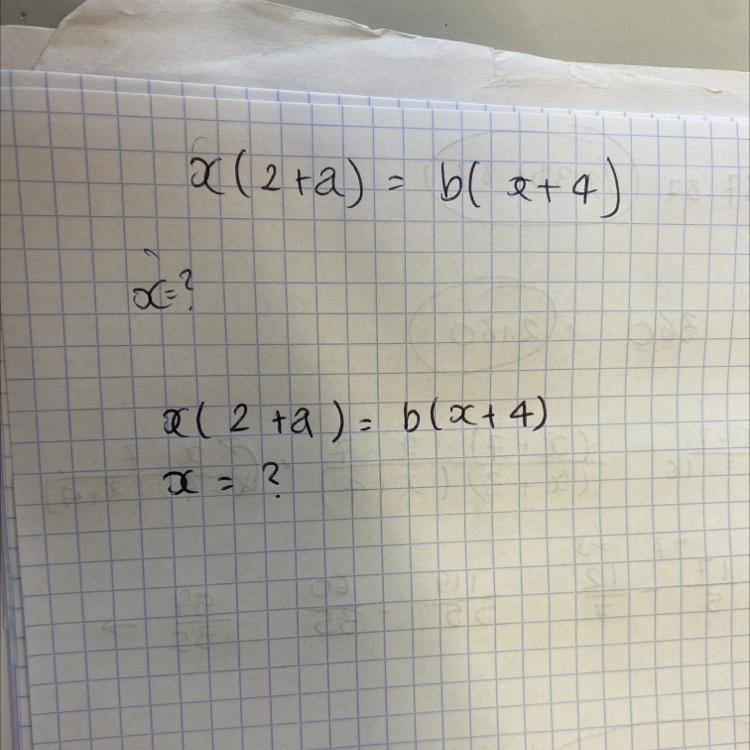 x(2+a) = b(x+4)
x=?
x(2+a) = b(x+4)
x = ?